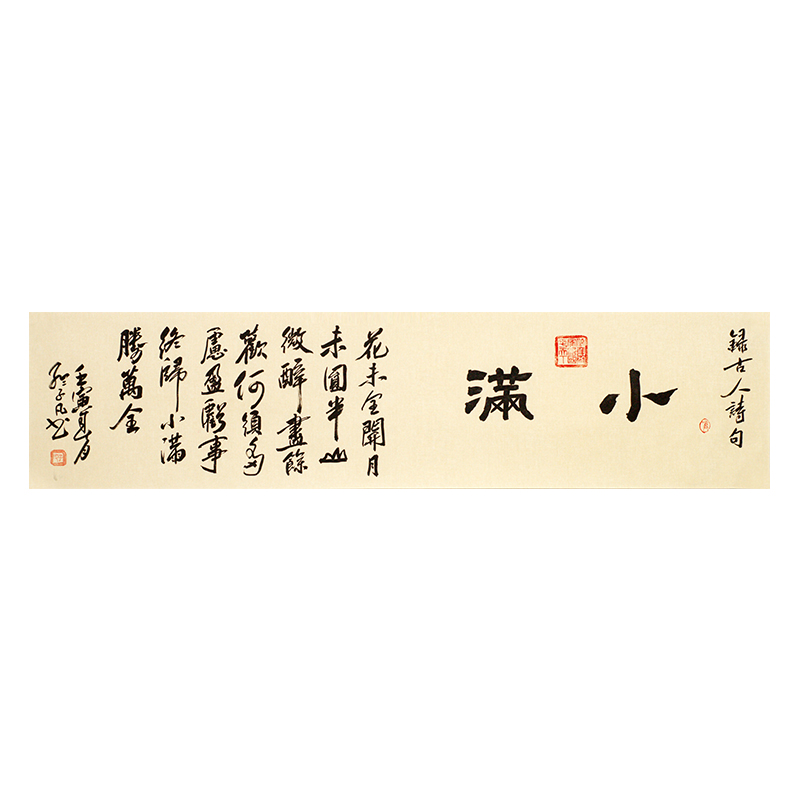 錄古人詩句
小滿
花未全開月
未圓半山
微醉盡餘
歡何須多
慮盈虧事
終歸小滿
勝萬全
壬寅夏月